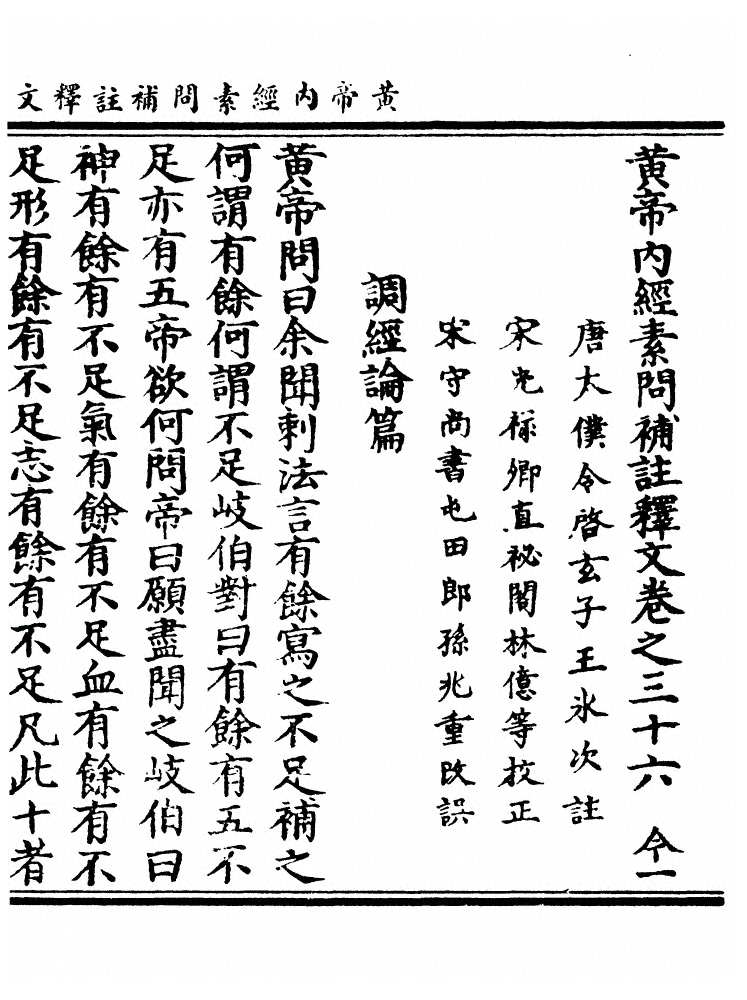 黃帝內經素問補註釋文
黃帝內經素問補註釋文卷之三十六 今一
唐太僕令啓玄子王氷次註
宋光祿卿直祕閣林億等校正
宋守尚書屯田郎孫兆重改誤
調經論篇
黃帝問曰余聞刺法言有餘寫之不足補之
何謂有餘何謂不足岐伯對曰有餘有五不
足亦有五帝欲何問帝曰願盡聞之岐伯曰
神有餘有不足氣有餘有不足血有餘有不
足形有餘有不足志有餘有不足凡此十者